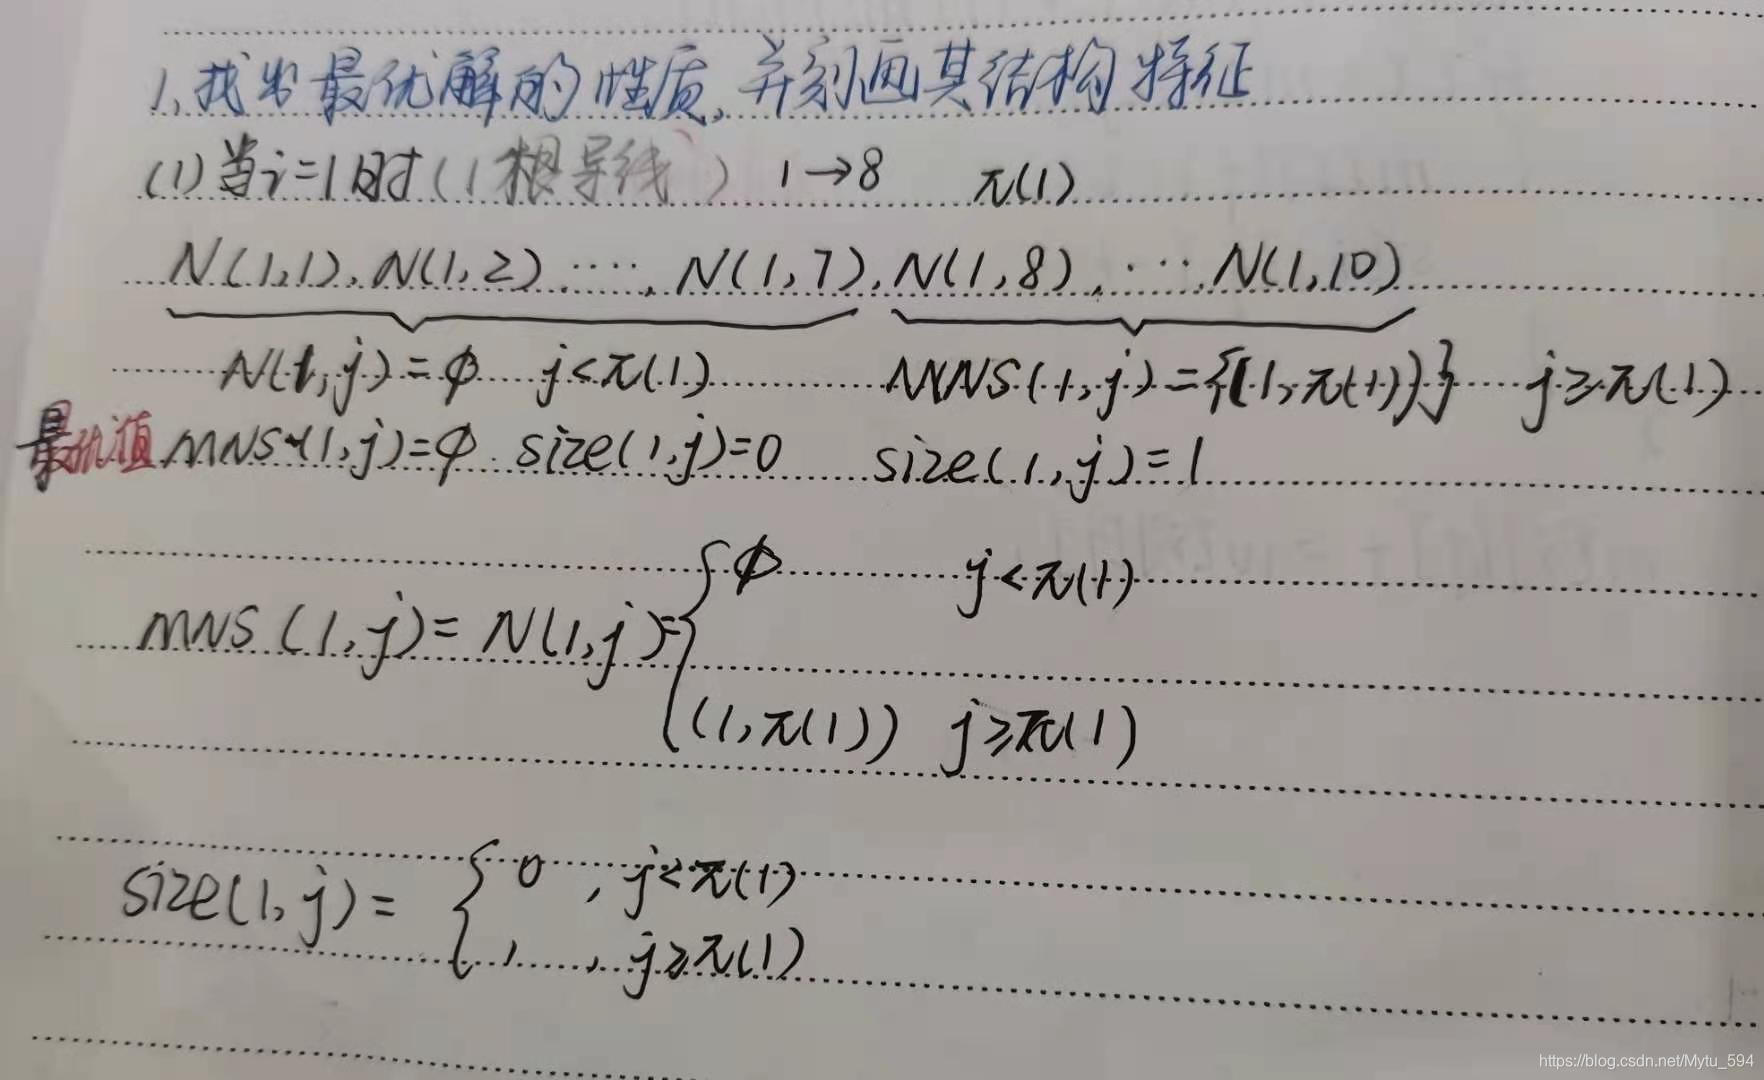 1、找出最优解的性质，并刻画其结构特征
(1)当i=1时(1根导线) 1→8 π(1)
N(1,1), N(1,2) ······, N(1,7), N(1,8), ····, N(1,10)
N(1,j)=φ j<π(1) MNS(1,j)={(1,π(1))} j≥π(1)
最优值 MNS(1,j)=φ size(1,j)=0 size(1,j)=1
φ j<π(1)
MNS(1,j)= N(1,j)={
(1,π(1)) j≥π(1)
0 , j<π(1)
size(1,j)= {
1 , j≥π(1)
https://blog.csdn.net/Mytu_594